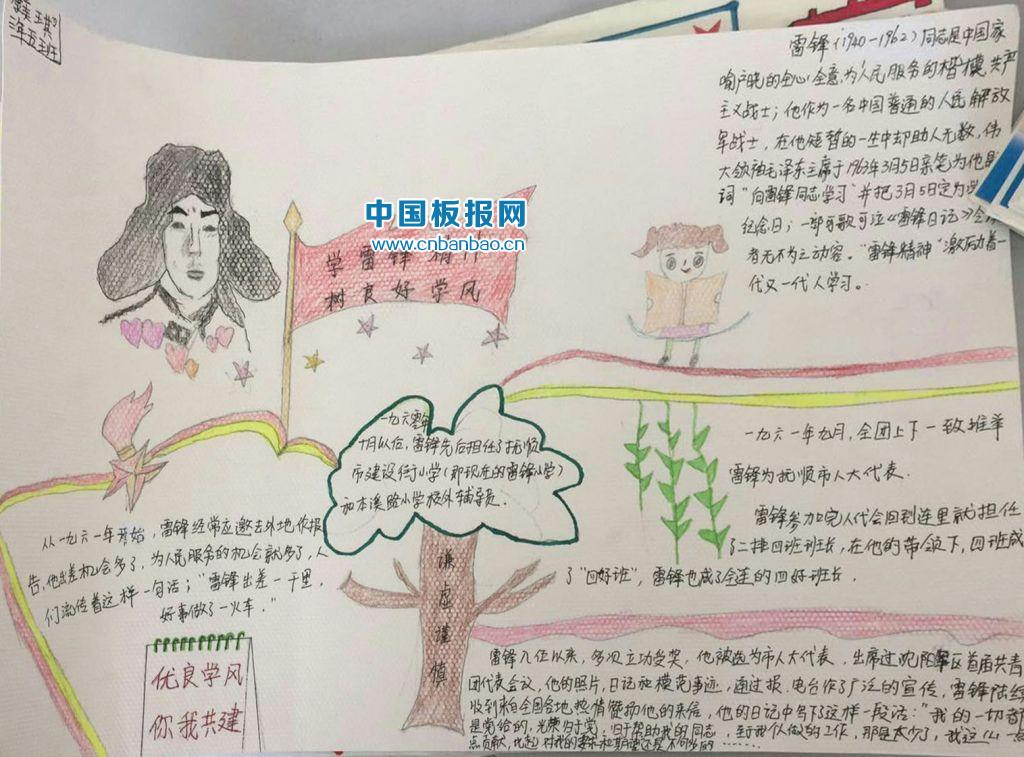 琪
班
雷锋(1940-1962)同志是中国家
喻户晓的全心全意为人民服务的楷模,共产
主义战士;他作为一名中国普通的人民解放
军战士,在他短暂的一生中却助人无数,伟
大领袖毛泽东主席于1963年3月5日亲笔为他
词"向雷锋同志学习"并把3月5日定为
纪念日;一部可歌可泣《雷锋日记》令
者无不为之动容。"雷锋精神"激励着一
代又一代人学习。
中国板报网
www.cnbanbao.cn
学雷锋精
树良好学风
一九六零年
十月以后,雷锋先后担任了抚顺
市建设街小学(即现在的雷锋小学)
和本溪路小学校外辅导员.
谦虚谨慎
一九六一年九月,全团上下一致推举
雷锋为抚顺市人大代表.
雷锋参加完人代会回到连里就担任
了二排四班班长,在他的带领下,四班成
了"四好班",雷锋也成了全连的四好班长.
从一九六一年开始,雷锋经常应邀去外地作报
告,他出差机会多了,为人民服务的机会就多了,人
们流传着这样一句话;"雷锋出差一千里,
好事做了一火车."
优良学风
你我共建
雷锋入伍以来,多次立功受奖,他被选为市人大代表,出席过沈阳军区首届共青
团代表会议,他的照片,日记和模范事迹,通过报.电台作了广泛的宣传,雷锋陆续
收到来自全国各地热情赞扬他的来信,他的日记中写下了这样一段话:"我的一切都
是党给的,光荣归于党,归于帮助我的同志,至于我个人做的工作,那是太少了,我这么一点
点贡献,比起对我的要求和期望还是不够的……